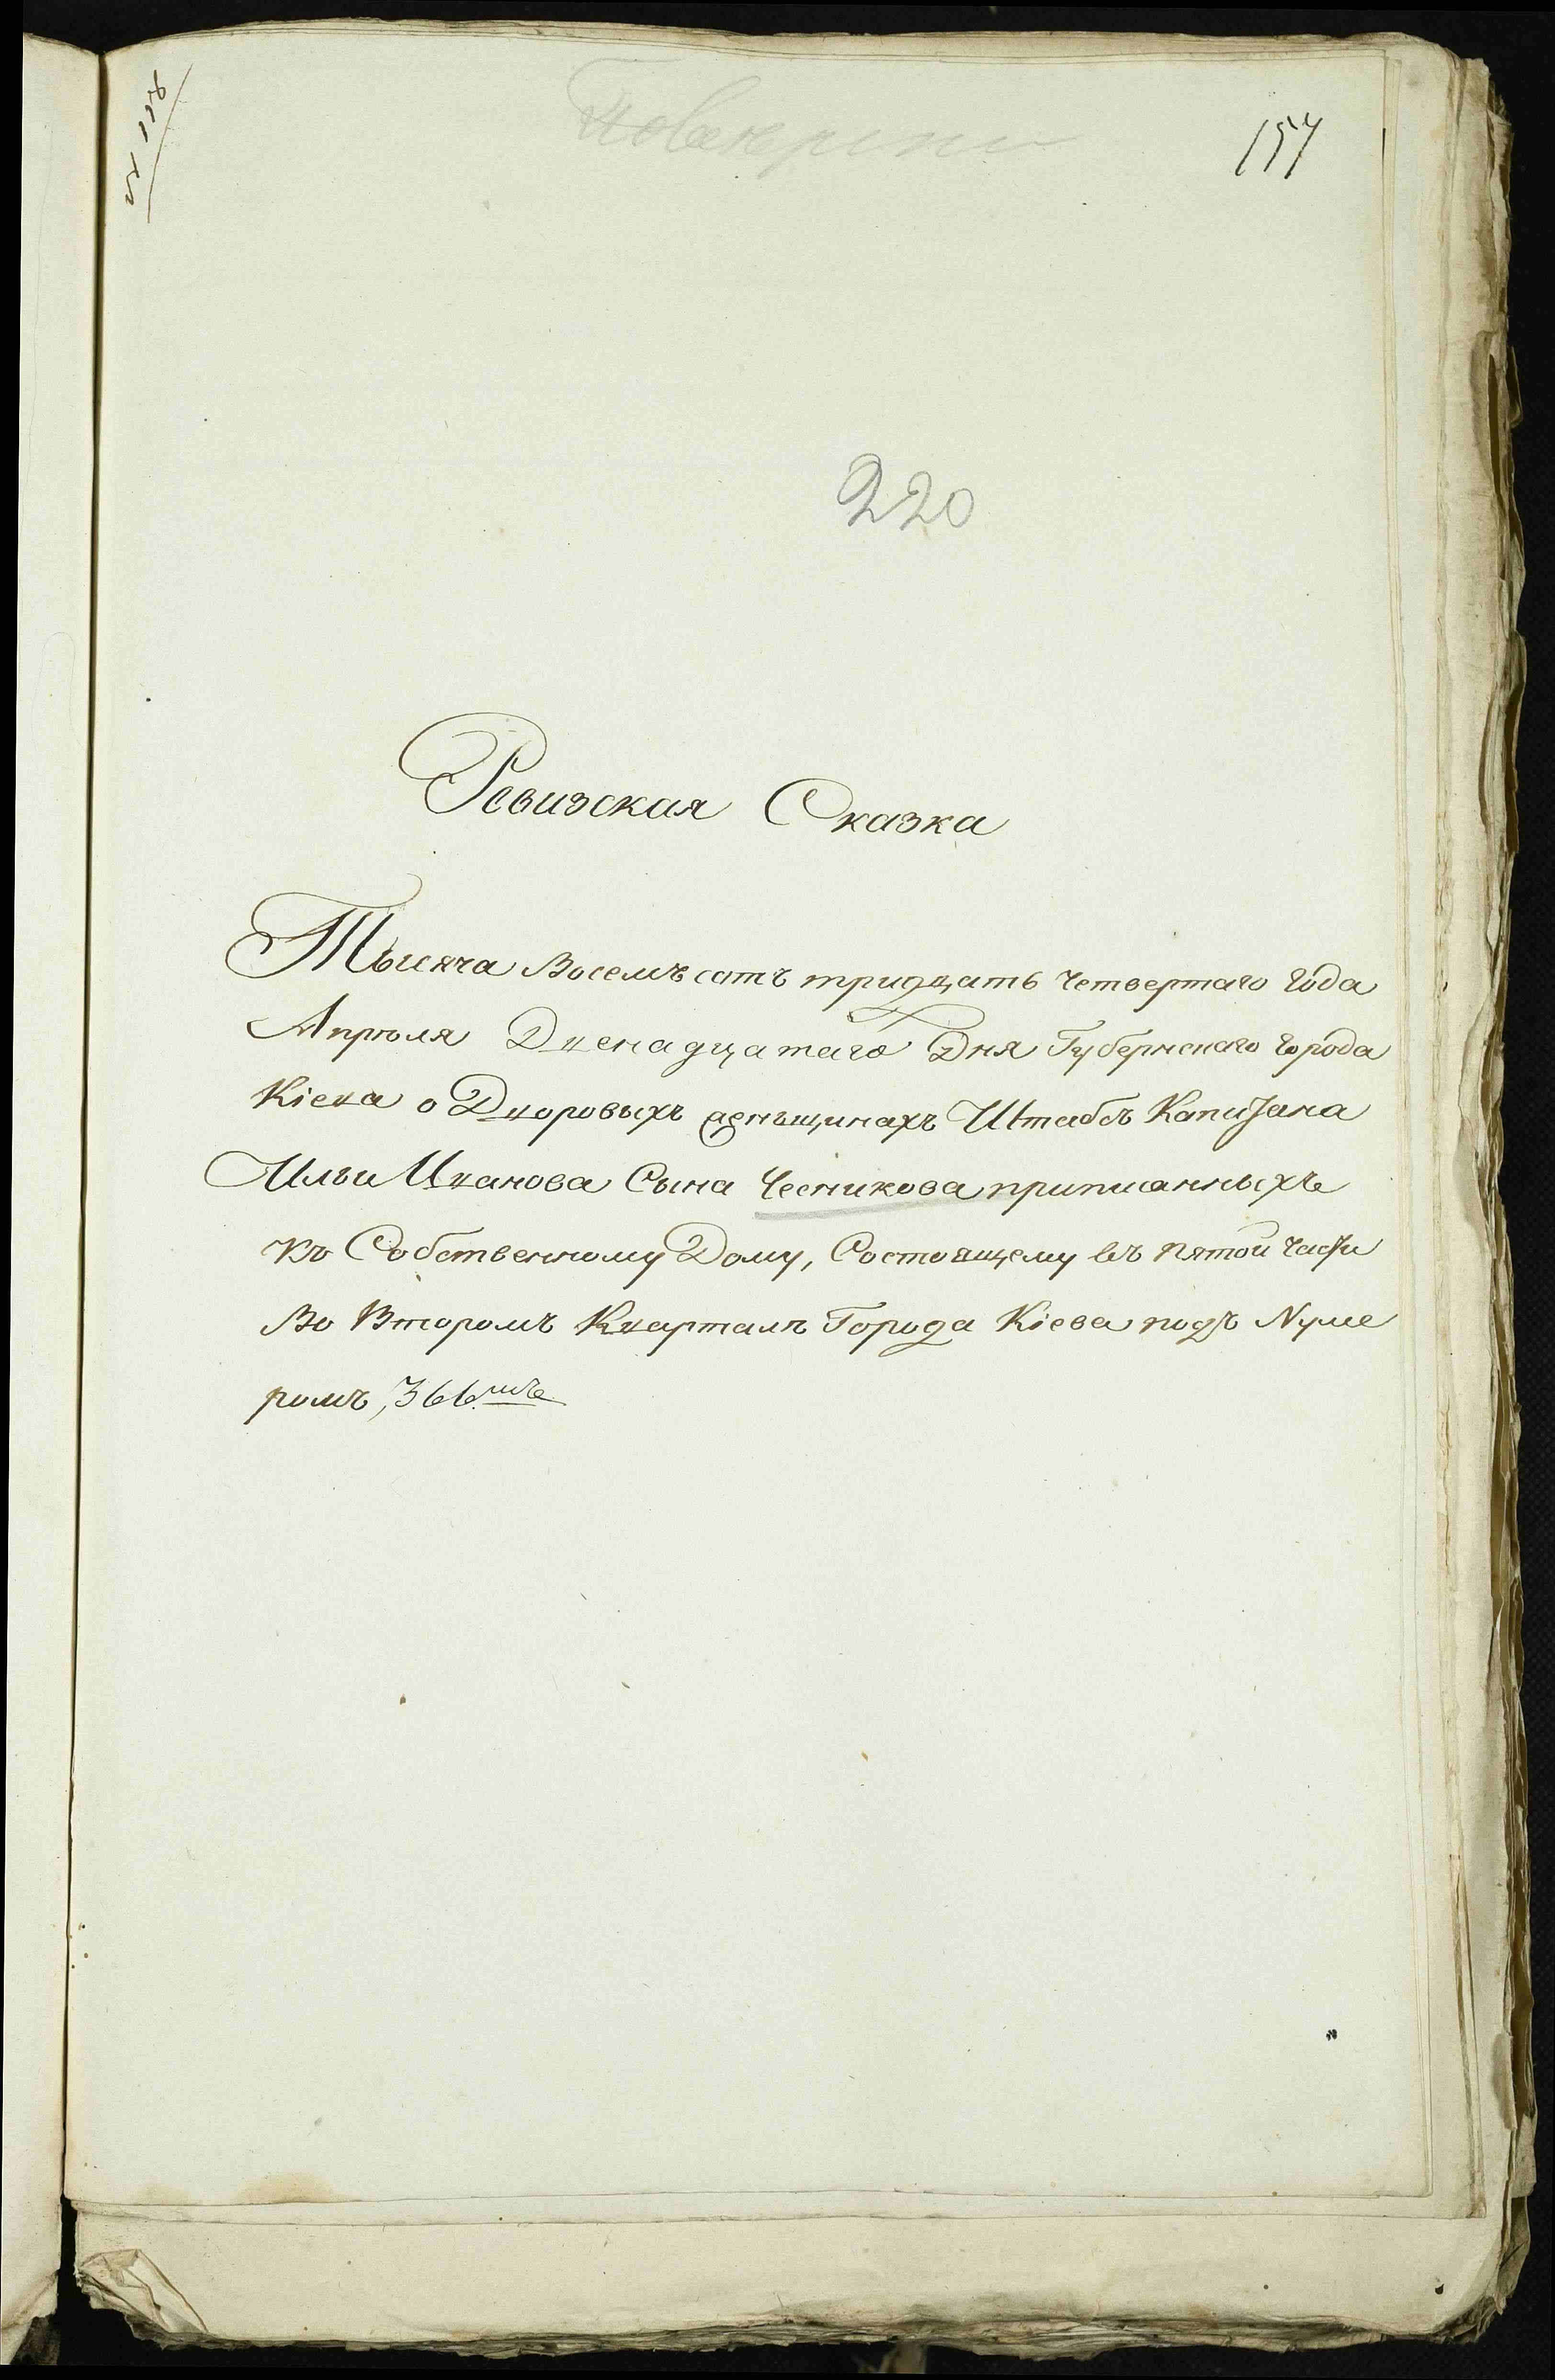 154
220
Ревизская Сказка
Тысяча Восемъ сотъ тридцать четвертаго года
Апрѣля Двенадцатаго Дня Губернскаго города
Кіева о Дворовыхъ деньщикахъ Штабсъ Капитана
Ильи Иванова Сына Чесникова приписанныхъ
къ Собственному Дому, Состоящему въ пятой части
Во Второмъ Кварталѣ Города Кіева подъ Нуме
ромъ, 366мъ